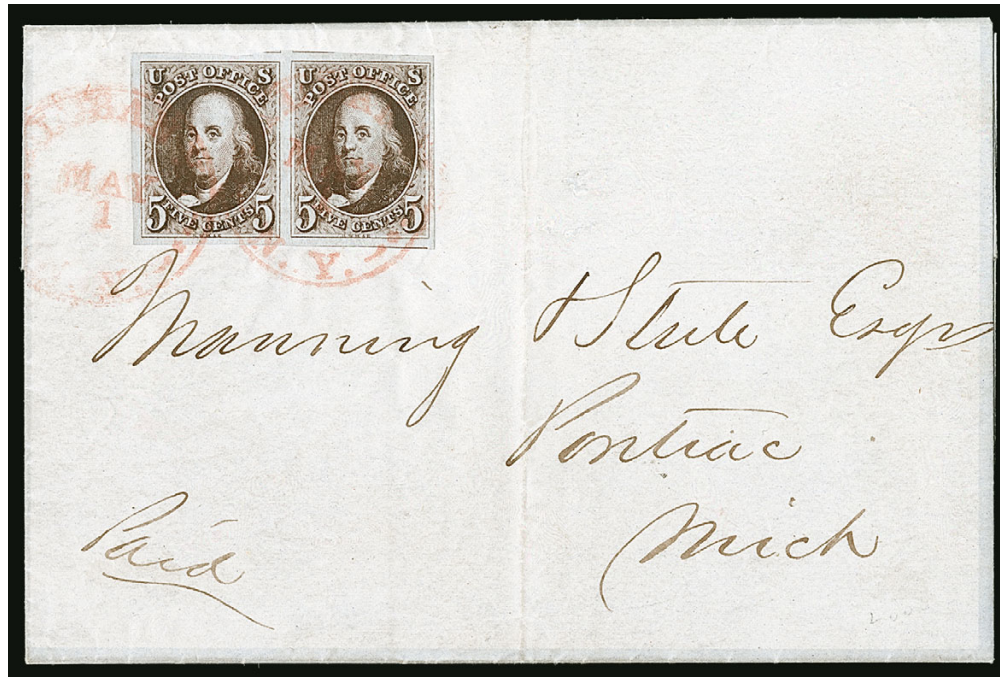 U POST OFFICE S
5 FIVE CENTS 5
U POST OFFICE S
5 FIVE CENTS 5
MAY
1
N.Y.
N.Y.
Manning & Stule Esqrs
Pontiac
Mich
Paid